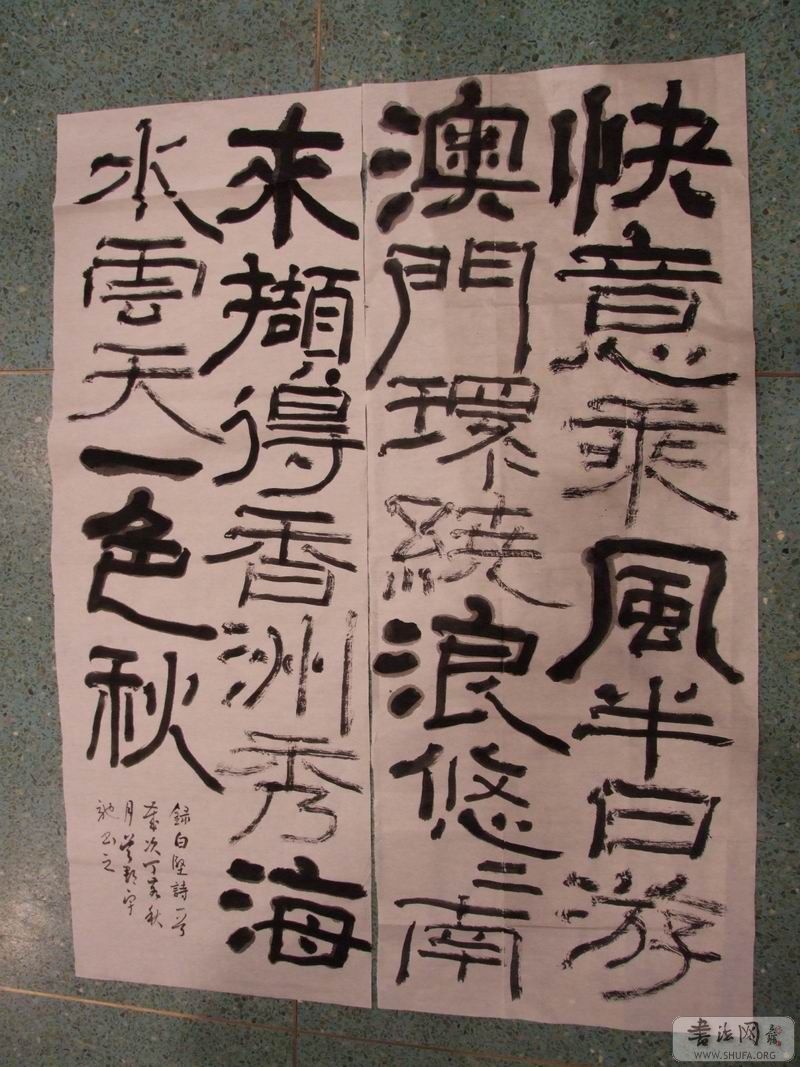 快意乘風半日游
澳門環繞浪悠〻南
來擷得香洲秀海
水雲天一色秋
録白堅詩一首
歲次丁亥秋
月
書之
書法网
WWW.SHUFA.ORG